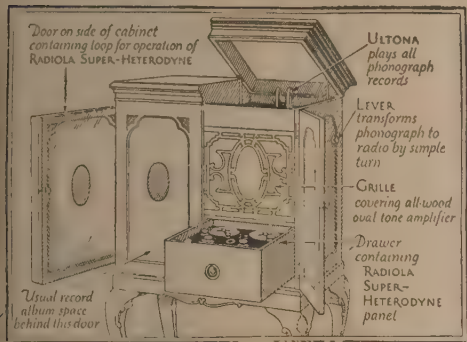 Door on side of cabinet
containing loop for operation of
RADIOLA SUPER-HETERODYNE
ULTONA
plays all
phonograph
records
LEVER
transforms
phonograph to
radio by simple
turn
GRILLE
covering all-wood
oval tone amplifier
Drawer
containing
RADIOLA
SUPER-
HETERODYNE
panel
Usual record
album space
behind this door